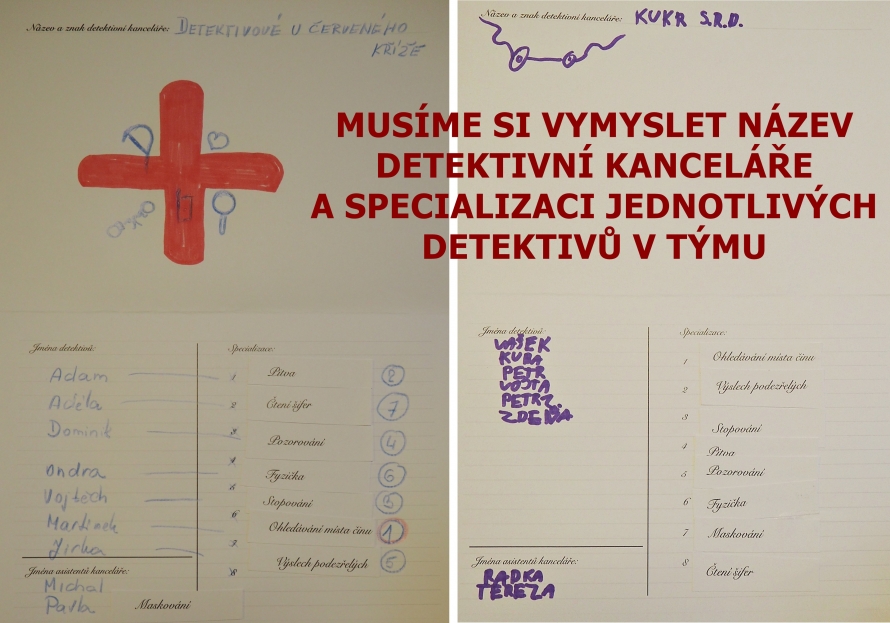 Název a znak detektivní kanceláře: DETEKTIVOVÉ U ČERVENÉHO
KŘÍŽE
Jména detektivů:
Specializace:
Adam 1 Pitva 8
Adéla 2 Čtení šifer 7
Dominik 3 Pozorování 4
Ondra Fyzička 6
Vojtěch Stopování 3
Martinek 6 Ohledávání místa činu 1
Jirka 7 Výslech podezřelých 5
8
Jména asistentů kanceláře:
Michal
Pavla Maskování
Název a znak detektivní kanceláře: KUKR S.R.O.
MUSÍME SI VYMYSLET NÁZEV
DETEKTIVNÍ KANCELÁŘE
A SPECIALIZACI JEDNOTLIVÝCH
DETEKTIVŮ V TÝMU
Jména detektivů:
VAŠEK
KUBA
PETR
VOJTA
PETR Z.
ZDEŇA
Specializace:
1 Ohledávání místa činu
2 Výslech podezřelých
3 Stopování
4 Pitva
5 Pozorování
6 Fyzička
7 Maskování
8 Čtení šifer
Jména asistentů kanceláře:
RADKA
TEREZA